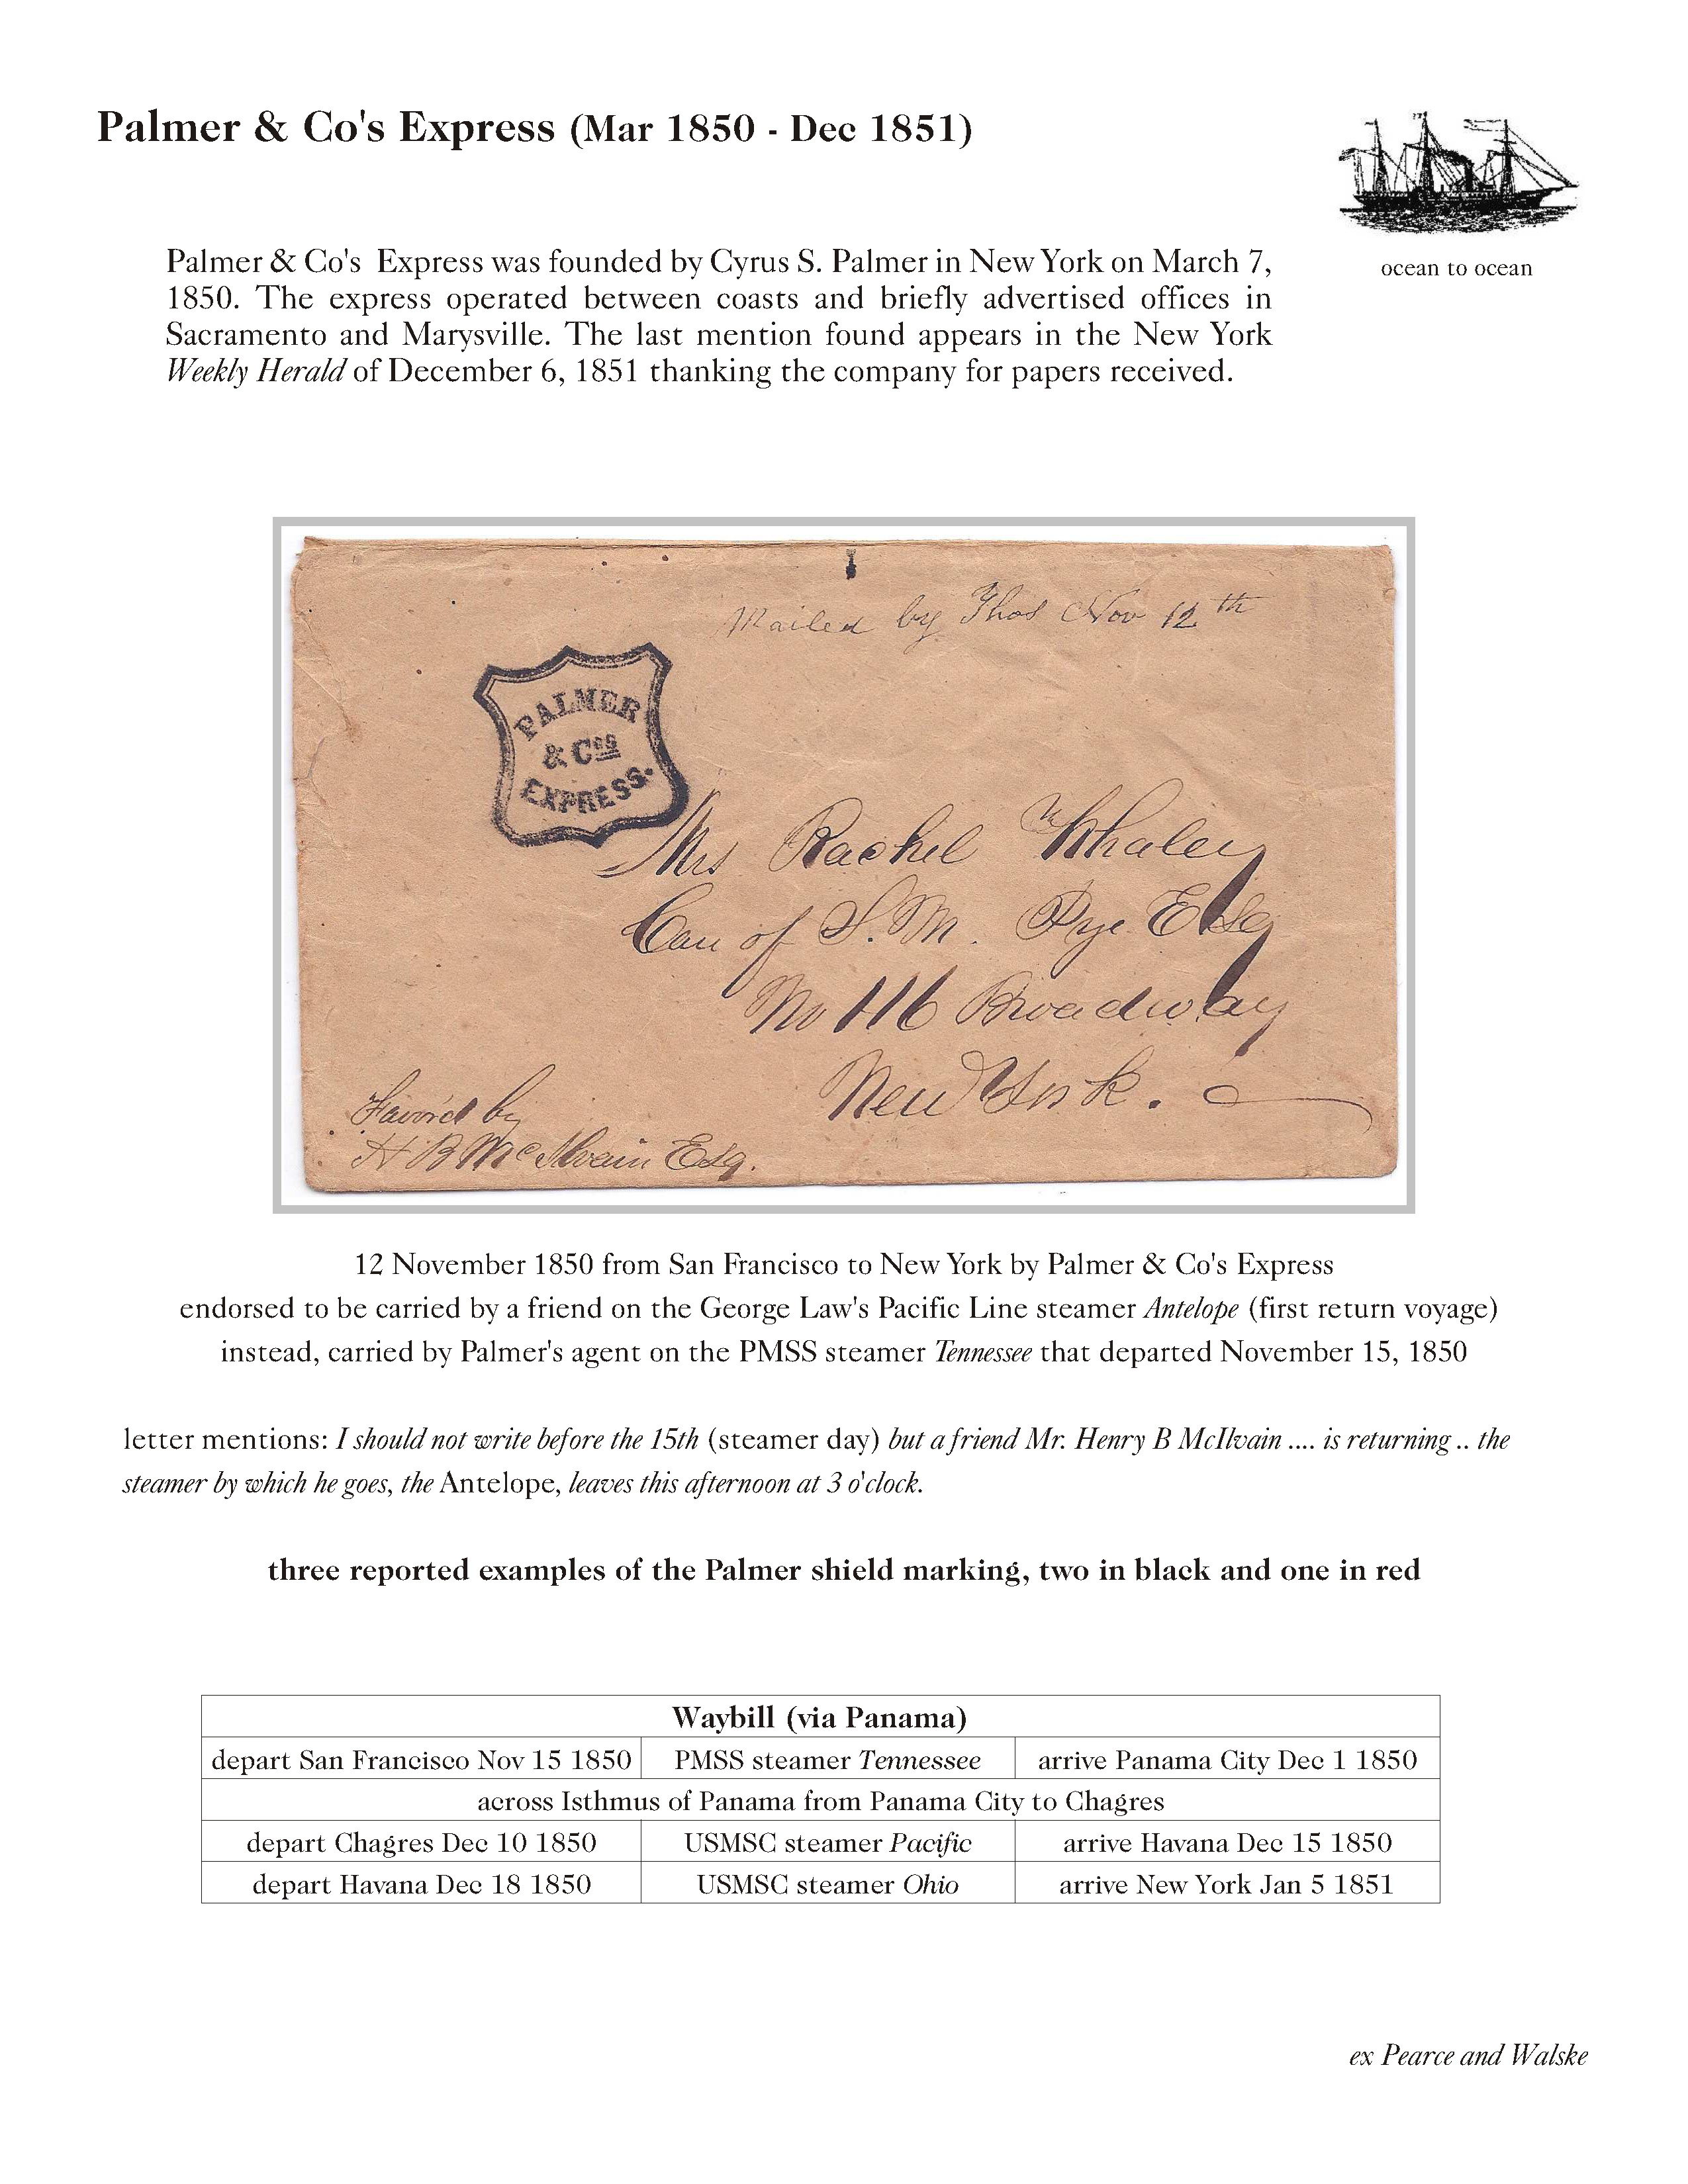 Palmer & Co's Express (Mar 1850 - Dec 1851)
ocean to ocean
Palmer & Co's Express was founded by Cyrus S. Palmer in New York on March 7,
1850. The express operated between coasts and briefly advertised offices in
Sacramento and Marysville. The last mention found appears in the New York
Weekly Herald of December 6, 1851 thanking the company for papers received.
Mailed by Thos Nov 12th
PALMER
& Cos
EXPRESS.
Mrs Rachel Whaley
Care of S. M. Pye Esq
No 116 Broadway
New York.
Favor'd by
H B McIlvain Esq.
12 November 1850 from San Francisco to New York by Palmer & Co's Express
endorsed to be carried by a friend on the George Law's Pacific Line steamer Antelope (first return voyage)
instead, carried by Palmer's agent on the PMSS steamer Tennessee that departed November 15, 1850
letter mentions: I should not write before the 15th (steamer day) but a friend Mr. Henry B McIlvain .... is returning .. the
steamer by which he goes, the Antelope, leaves this afternoon at 3 o'clock.
three reported examples of the Palmer shield marking, two in black and one in red
Waybill (via Panama)
depart San Francisco Nov 15 1850 PMSS steamer Tennessee arrive Panama City Dec 1 1850
across Isthmus of Panama from Panama City to Chagres
depart Chagres Dec 10 1850 USMSC steamer Pacific arrive Havana Dec 15 1850
depart Havana Dec 18 1850 USMSC steamer Ohio arrive New York Jan 5 1851
ex Pearce and Walske